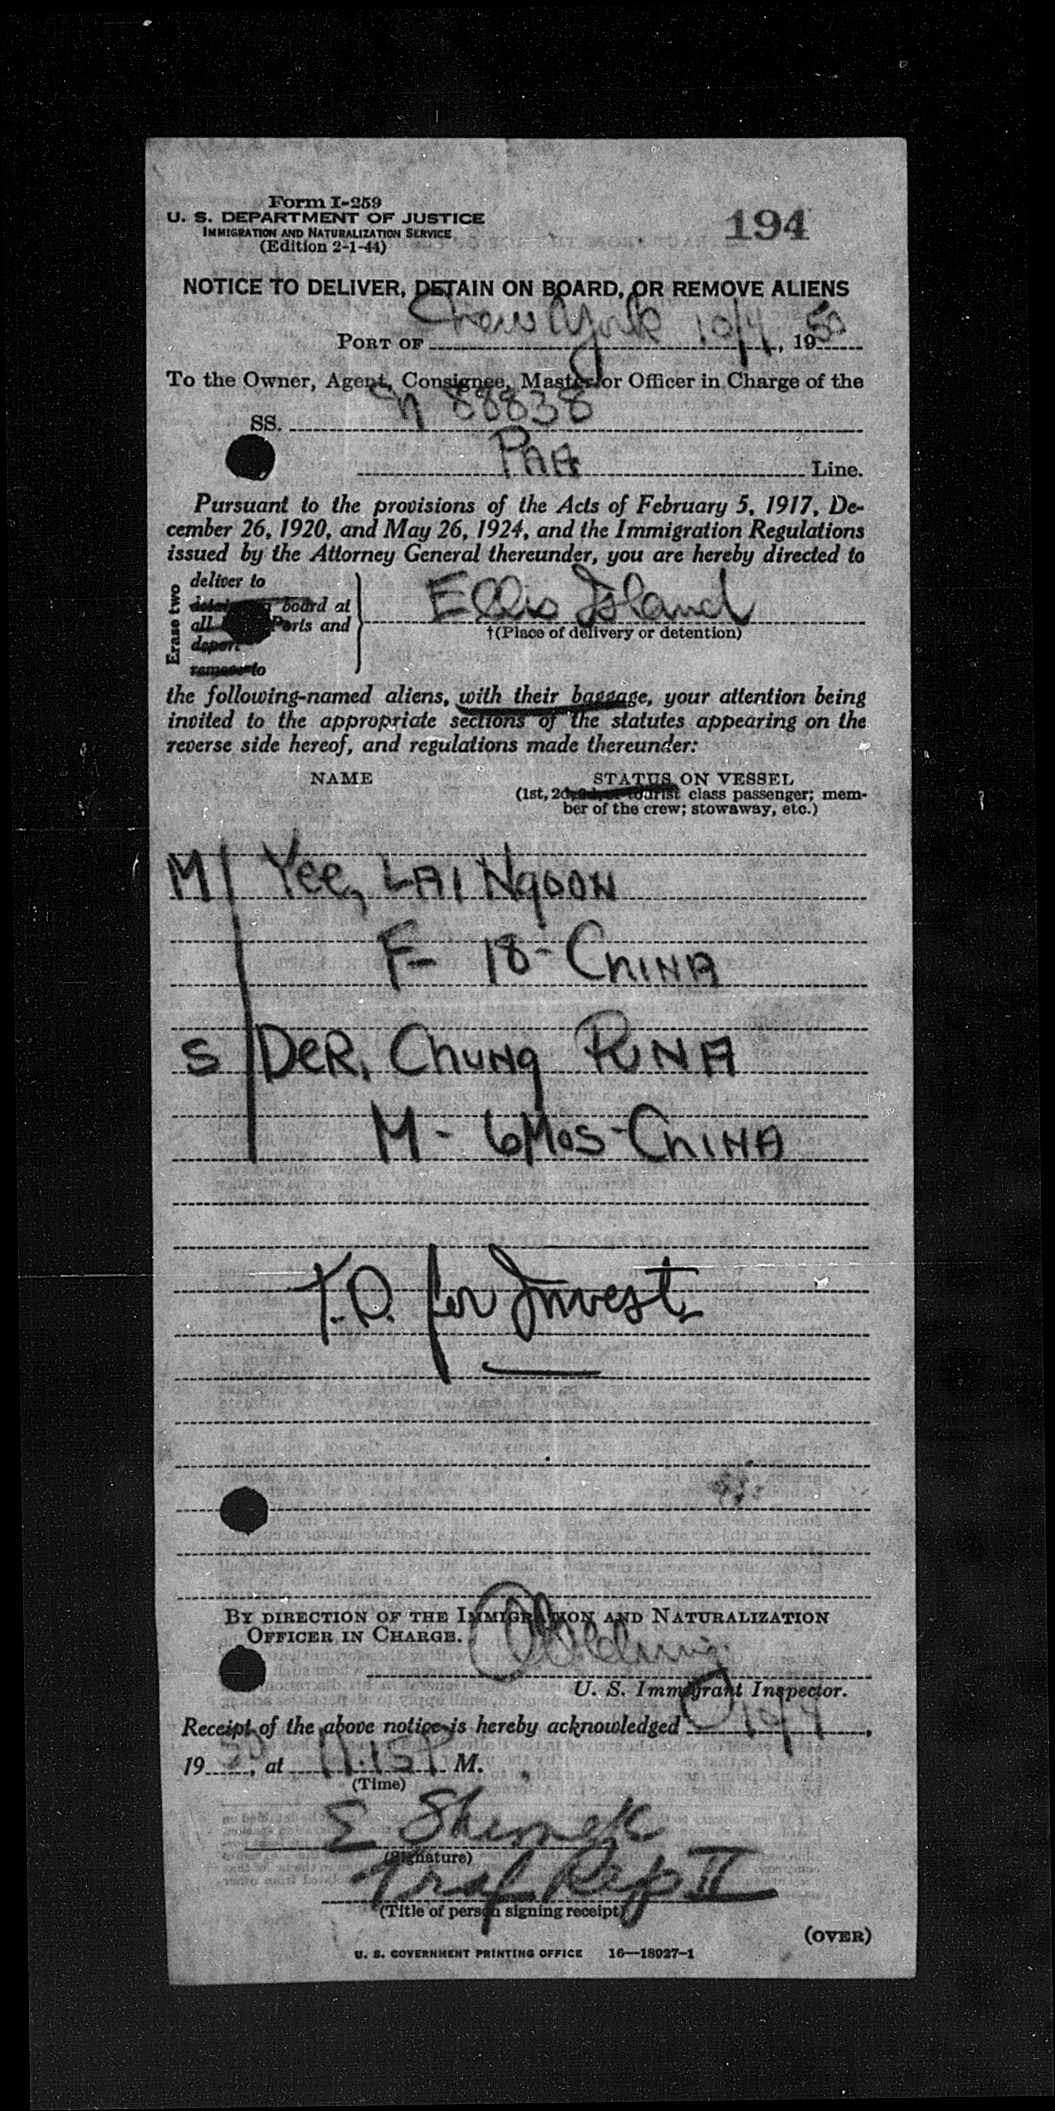 Form I-259
U. S. DEPARTMENT OF JUSTICE
IMMIGRATION AND NATURALIZATION SERVICE
(Edition 2-1-44)
194
NOTICE TO DELIVER, DETAIN ON BOARD, OR REMOVE ALIENS
PORT OF New York 10/4, 1950
To the Owner, Agent, Consignee, Master or Officer in Charge of the
SS. N 88838
PAA Line.
Pursuant to the provisions of the Acts of February 5, 1917, De-
cember 26, 1920, and May 26, 1924, and the Immigration Regulations
issued by the Attorney General thereunder, you are hereby directed to
Erase two
deliver to
board at
all Ports and
deport
remove to
Ellis Island
†(Place of delivery or detention)
the following-named aliens, with their baggage, your attention being
invited to the appropriate sections of the statutes appearing on the
reverse side hereof, and regulations made thereunder:
NAME STATUS ON VESSEL
(1st, 2d, 3d, or tourist class passenger; mem-
ber of the crew; stowaway, etc.)
M Yee, LAI NgOON
F- 18- CHINA
S DER, Chung
M- 6Mos- CHINA
T.D. for Invest
BY DIRECTION OF THE IMMIGRATION AND NATURALIZATION
OFFICER IN CHARGE.
U. S. Immigrant Inspector.
Receipt of the above notice is hereby acknowledged 10/4,
19 50, at 11:15 P M.
(Time)
E Shimek
(Signature)
Traf Rep II
(Title of person signing receipt)
(OVER)
U. S. GOVERNMENT PRINTING OFFICE 16—18927-1